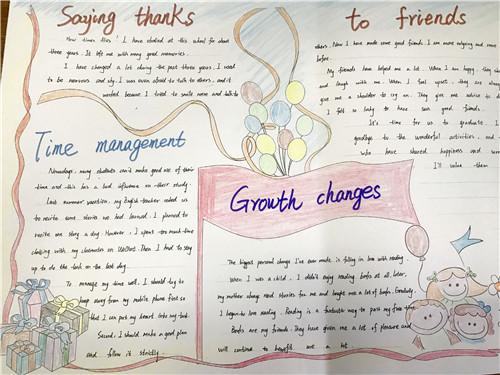 Saying thanks
How times flies! I have studied at this school for about
three years. It left me with many good memories.
I have changed a lot during the past three years. I used
to be nervous and shy. I was even afraid to talk to others. and it
worked because I tried to smile more and talk to
to friends
others. Now I have made some good friends. I am more outgoing and
before.
My friends have helped me a lot. When I am happy, they
and laugh with me. When I feel upset. They are always
give me a shoulder to cry on. They give me advice
I feel so lucky to have such good friends.
It's time for us to graduate. I
goodbye to the wonderful activities. and
who have shared happiness and
I'll value them
Time management
Nowadays, many students can't make good use of their
time and this has a bad influence on their study.
Last summer vacation, my English teacher asked us
to recite some stories we had learned. I planned to
recite one story a day. However, I spent too much time
chatting with my classmates on WeChat. Then I had to stay
up to do the task on the last day.
To manage my time well, I should try to
keep away from my mobile phone first so
that I can put my heart into my task.
Second, I should make a good plan
and follow it strictly.
Growth changes
The biggest personal change I've ever made is falling in love with reading.
When I was a child, I didn't enjoy reading books at all. Later,
my mother always read stories for me and bought me a lot of books. Gradually,
I began to love reading. Reading is a fantastic way to pass my time.
Books are my friends. They have given me a lot of pleasure and
will continue to benefit me a lot.